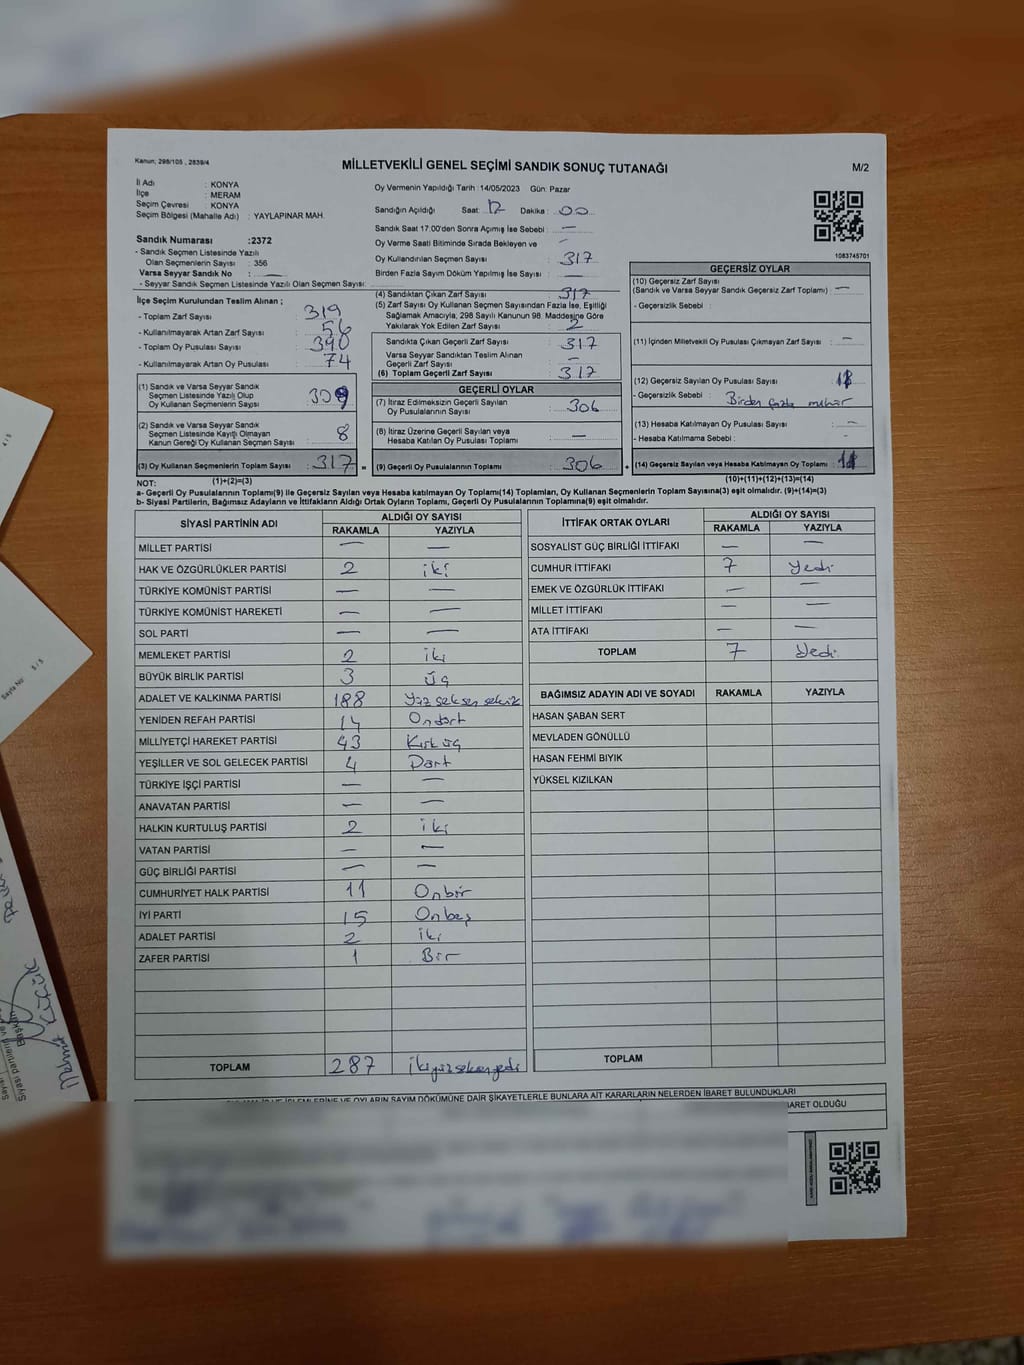 Kanun; 298/105 , 2839/4
MİLLETVEKİLİ GENEL SEÇİMİ SANDIK SONUÇ TUTANAĞI
M/2
İl Adı : KONYA
İlçe : MERAM
Seçim Çevresi : KONYA
Seçim Bölgesi (Mahalle Adı) : YAYLAPINAR MAH.
Oy Vermenin Yapıldığı Tarih :14/05/2023 Gün: Pazar
Sandığın Açıldığı Saat: 17 Dakika : 00
Sandık Saat 17:00'den Sonra Açımış İse Sebebi : —
Oy Verme Saati Bitiminde Sırada Bekleyen ve
Oy Kullandırılan Seçmen Sayısı : 317
Birden Fazla Sayım Döküm Yapılmış İse Sayısı : —
Sandık Numarası :2372
- Sandık Seçmen Listesinde Yazılı
Olan Seçmenlerin Sayısı : 356
Varsa Seyyar Sandık No : —
- Seyyar Sandık Seçmen Listesinde Yazılı Olan Seçmen Sayısı:
1083745701
İlçe Seçim Kurulundan Teslim Alınan ;
- Toplam Zarf Sayısı : 319
- Kullanılmayarak Artan Zarf Sayısı : 56
- Toplam Oy Pusulası Sayısı : 390
- Kullanılmayarak Artan Oy Pusulası : 74
(1) Sandık ve Varsa Seyyar Sandık
Seçmen Listesinde Yazılı Olup
Oy Kullanan Seçmenlerin Sayısı : 309
(2) Sandık ve Varsa Seyyar Sandık
Seçmen Listesinde Kayıtlı Olmayan
Kanun Gereği Oy Kullanan Seçmen Sayısı : 8
(3) Oy Kullanan Seçmenlerin Toplam Sayısı : 317 =
(4) Sandıktan Çıkan Zarf Sayısı : 317
(5) Zarf Sayısı Oy Kullanan Seçmen Sayısından Fazla İse, Eşitliği
Sağlamak Amacıyla, 298 Sayılı Kanunun 98. Maddesine Göre
Yakılarak Yok Edilen Zarf Sayısı : 2
Sandıkta Çıkan Geçerli Zarf Sayısı : 317
Varsa Seyyar Sandıktan Teslim Alınan
Geçerli Zarf Sayısı : —
(6) Toplam Geçerli Zarf Sayısı : 317
GEÇERLİ OYLAR
(7) İtiraz Edilmeksizin Geçerli Sayılan
Oy Pusulalarının Sayısı : 306
(8) İtiraz Üzerine Geçerli Sayılan veya
Hesaba Katılan Oy Pusulası Toplamı : —
(9) Geçerli Oy Pusulalarının Toplamı : 306 +
GEÇERSİZ OYLAR
(10) Geçersiz Zarf Sayısı
(Sandık ve Varsa Seyyar Sandık Geçersiz Zarf Toplamı) : —
- Geçersizlik Sebebi :
(11) İçinden Milletvekili Oy Pusulası Çıkmayan Zarf Sayısı : —
(12) Geçersiz Sayılan Oy Pusulası Sayısı : 11
- Geçersizlik Sebebi : Birden fazla mühür
(13) Hesaba Katılmayan Oy Pusulası Sayısı : —
- Hesaba Katılmama Sebebi : —
(14) Geçersiz Sayılan veya Hesaba Katılmayan Oy Toplamı : 11
NOT: (1)+(2)=(3) (10)+(11)+(12)+(13)=(14)
a- Geçerli Oy Pusulalarının Toplamı(9) ile Geçersiz Sayılan veya Hesaba katılmayan Oy Toplamı(14) Toplamları, Oy Kullanan Seçmenlerin Toplam Sayısına(3) eşit olmalıdır. (9)+(14)=(3)
b- Siyasi Partilerin, Bağımsız Adayların ve İttifakların Aldığı Ortak Oyların Toplamı, Geçerli Oy Pusulalarının Toplamına(9) eşit olmalıdır.
SİYASİ PARTİNİN ADI ALDIĞI OY SAYISI
RAKAMLA YAZIYLA
MİLLET PARTİSİ — —
HAK VE ÖZGÜRLÜKLER PARTİSİ 2 iki
TÜRKİYE KOMÜNİST PARTİSİ — —
TÜRKİYE KOMÜNİST HAREKETİ — —
SOL PARTİ — —
MEMLEKET PARTİSİ 2 iki
BÜYÜK BİRLİK PARTİSİ 3 üç
ADALET VE KALKINMA PARTİSİ 188 Yüz seksen sekiz
YENİDEN REFAH PARTİSİ 14 Ondört
MİLLİYETÇİ HAREKET PARTİSİ 43 Kırk üç
YEŞİLLER VE SOL GELECEK PARTİSİ 4 Dört
TÜRKİYE İŞÇİ PARTİSİ — —
ANAVATAN PARTİSİ — —
HALKIN KURTULUŞ PARTİSİ 2 iki
VATAN PARTİSİ — —
GÜÇ BİRLİĞİ PARTİSİ — —
CUMHURİYET HALK PARTİSİ 11 Onbir
İYİ PARTİ 15 Onbeş
ADALET PARTİSİ 2 iki
ZAFER PARTİSİ 1 Bir
TOPLAM 287 ikiyüzseksenyedi
İTTİFAK ORTAK OYLARI ALDIĞI OY SAYISI
RAKAMLA YAZIYLA
SOSYALİST GÜÇ BİRLİĞİ İTTİFAKI — —
CUMHUR İTTİFAKI 7 yedi
EMEK VE ÖZGÜRLÜK İTTİFAKI — —
MİLLET İTTİFAKI — —
ATA İTTİFAKI — —
TOPLAM 7 Yedi
BAĞIMSIZ ADAYIN ADI VE SOYADI RAKAMLA YAZIYLA
HASAN ŞABAN SERT
MEVLADEN GÖNÜLLÜ
HASAN FEHMİ BIYIK
YÜKSEL KIZILKAN
TOPLAM
İŞLEMLERİNE VE OYLARIN SAYIM DÖKÜMÜNE DAİR ŞİKAYETLERLE BUNLARA AİT KARARLARIN NELERDEN İBARET BULUNDUKLARI
BARET OLDUĞU
4/5
Sayfa No: 5/5
Başkan